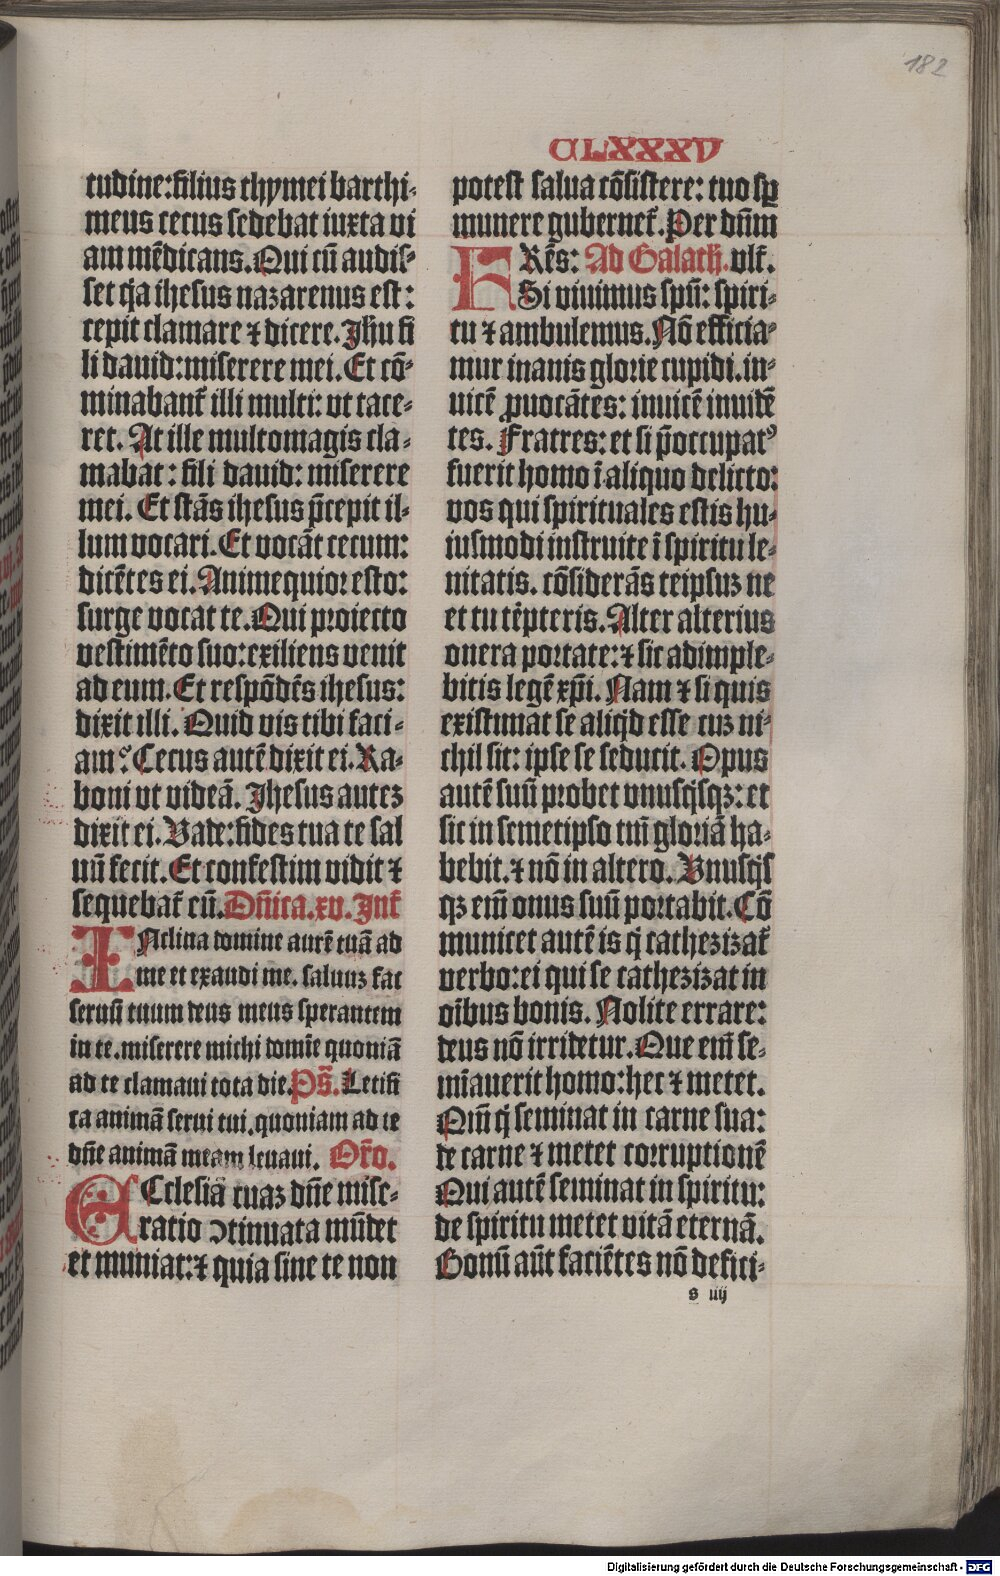 182
CLXXXV
tudine: filius thymei barthi-
meus cecus sedebat iuxta vi
am mēdicans. Qui cū audis-
set qͥa ihesus nazarenus est:
cepit clamare ⁊ dicere. Jhu fi
li dauid: miserere mei. Et cō-
minabant᷑ illi multi: vt tace-
ret. At ille multomagis cla-
mabat: fili dauid: miserere
mei. Et stās ihesus p̄cepit il-
lum vocari. Et vocāt cecum:
dicētes ei. Animequior esto:
surge vocat te. Qui proiecto
vestimēto suo: exiliens venit
ad eum. Et respōdēs ihesus:
dixit illi. Quid vis tibi faci-
am? Cecus autē dixit ei. Ra-
boni vt videā. Jhesus autez
dixit ei. Vade: fides tua te sal
uū fecit. Et confestim vidit ⁊
sequebat᷑ eū. Dn̄ica. xv. Int᷑
INclina domine aurē tuā ad
me et exaudi me. saluuz fac
seruū tuum deus meus sperantem
in te. miserere michi domīe quoniā
ad te clamaui tota die. Ps̄. Letifi
ca animā serui tui. quoniam ad te
dn̄e animā meam leuaui. Or̄o.
ECclesiā tuaz dn̄e mise-
ratio ↄtinuata mūdet
et muniat: ⁊ quia sine te non
potest salua cōsistere: tuo sꝑ
munere gubernet᷑. Per dn̄m
FRēs: Ad Galath. vlt᷑.
Si viuimus spū: spiri-
tu ⁊ ambulemus. Nō efficia-
mur inanis glorie cupidi. in-
uicē ꝓuocātes: inuicē inuidē
tes. Fratres: et si p̄occupatꝰ
fuerit homo ī aliquo delicto:
vos qui spirituales estis hu-
iusmodi instruite ī spiritu le-
nitatis. cōsiderās teipsuz ne
et tu tēpteris. Alter alterius
onera portate: ⁊ sic adimple-
bitis legē xp̄i. Nam ⁊ si quis
existimat se aliqͥd esse cuz ni-
chil sit: ipse se seducit. Opus
autē suū probet vnusqͥsqꝫ: et
sic in semetipso tm̄ gloriā ha-
bebit. ⁊ nō in altero. Vnusqͥs
qꝫ em̄ onus suū portabit. Cō
municet autē is qͥ cathezizat᷑
verbo: ei qui se cathezizat in
oībus bonis. Nolite errare:
deus nō irridetur. Que em̄ se-
mīauerit homo: hec ⁊ metet.
Qm̄ qͥ seminat in carne sua:
de carne ⁊ metet corruptionē
Qui autē seminat in spiritu:
de spiritu metet vitā eternā.
Bonū aūt faciētes nō defici-
s iiij
Digitalisierung gefördert durch die Deutsche Forschungsgemeinschaft - DFG